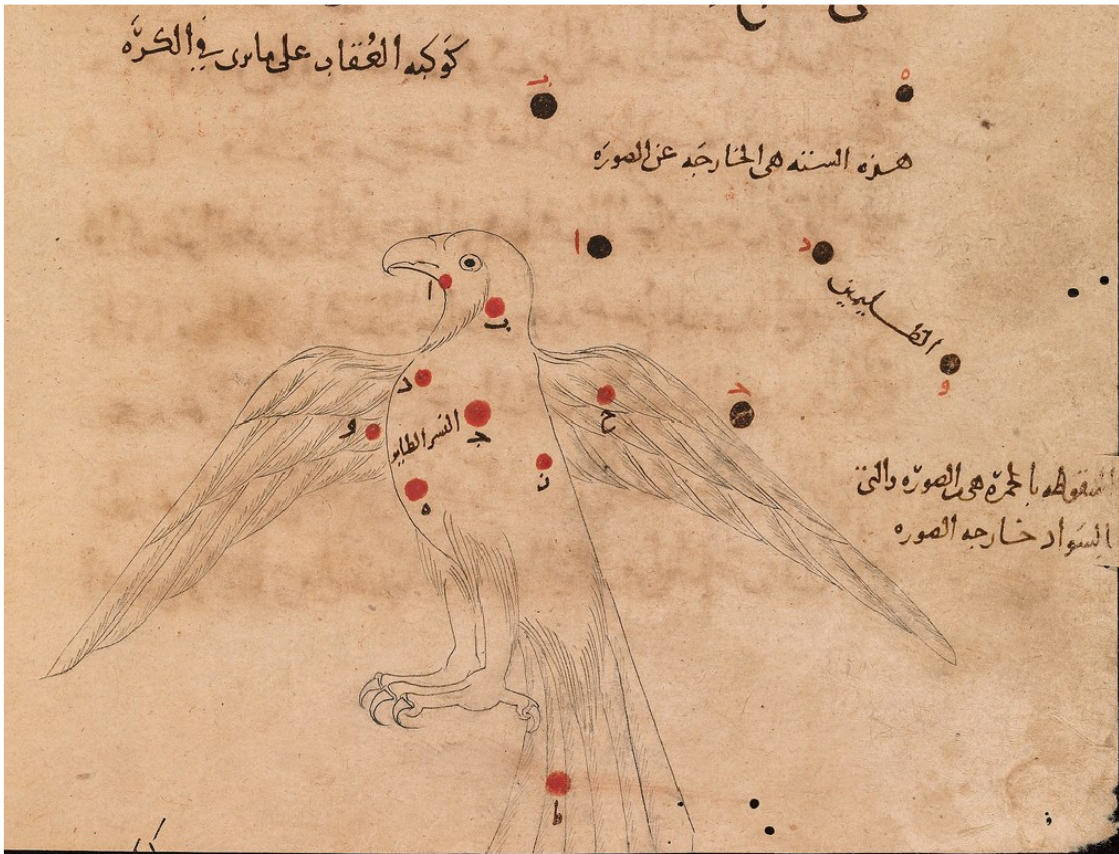 كوكبه العُقاب على ما يرى في الكرة
ب
ه
هذه الستة هي الخارجه عن الصوره
ا
د
الظليمين
و
ا
ب
د
ج
ح
و
النسر الطاير
ز
ه
المنقوطه بالحمرة هي الصوره والتي
بالسواد خارجه الصوره
ط